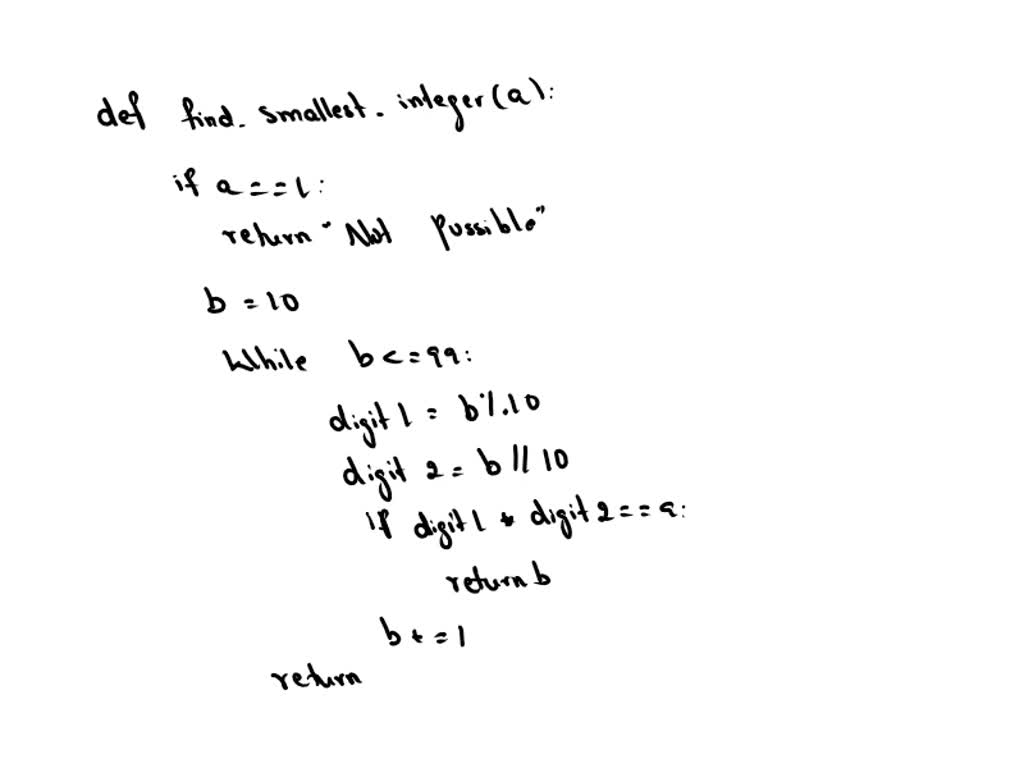 def find_smallest_integer(a):
if a==1:
return "Not possible"
b = 10
While b<=99:
digit 1 = b%10
digit 2 = b//10
if digit1 * digit2==a:
return b
b+=1
return